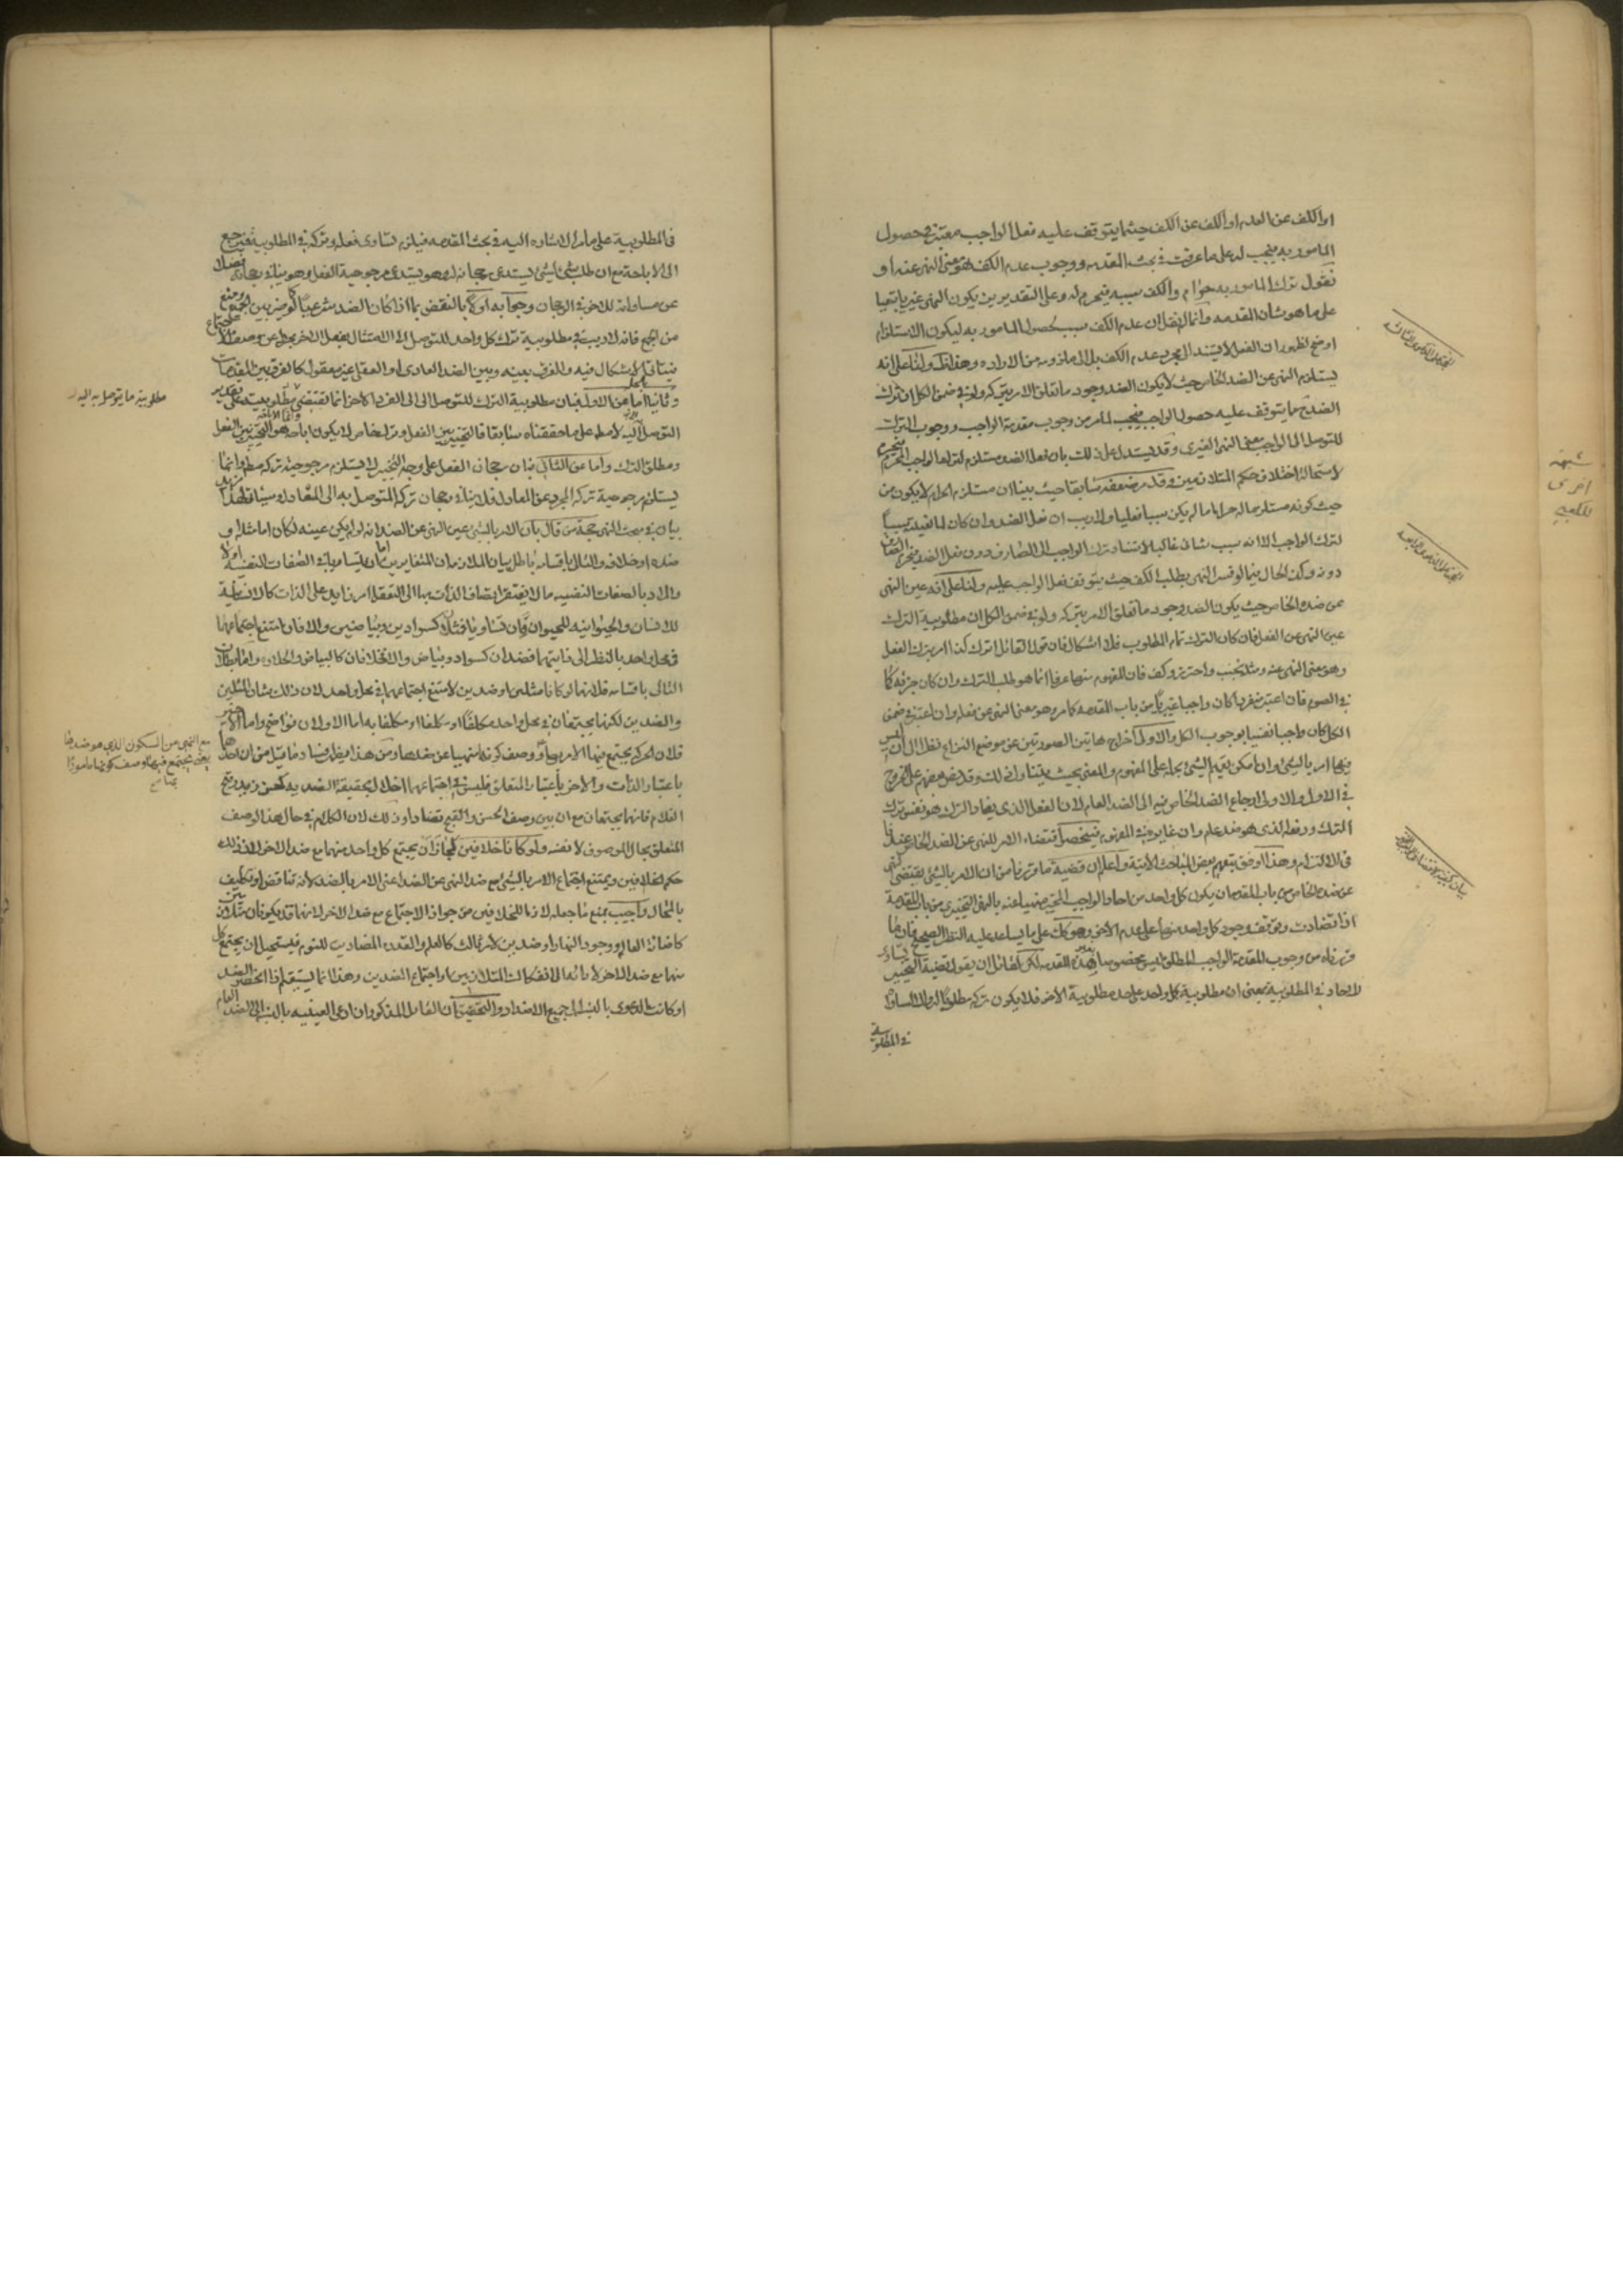 او الكف عن العدم او الكف عن الكف حيثما يتوقف عليه فعل الواجب معتبر في حصول
المامور به فيجب له على ما عرفت في بحث المقدمه ووجوب عدم الكف هو معنى النهى عنه او
نقول ترك المامور به حرام والكف سببه فيحرم له وعلى التقديرين يكون النهى غيريا تبعيا
على ما هو شان المقدمه وانما لم نقل ان عدم الكف سبب لحصول المامور به ليكون الاستلزام
اوضح لظهور ان الفعل لا يستند الى مجرد عدم الكف بل الى ملزومه من الاراده وهذا لنا على انه
يستلزم النهى عن الضد الخاص حيث لا يكون الضد وجود ما تعلق الامر بتركه ولو في ضمن الكل ان ترك
الضد مما يتوقف عليه حصول الواجب فيجب لما مر من وجوب مقدمة الواجب ووجوب الترك
للتوصل الى الواجب معنى النهى الغيرى وقد يستدل على ذلك بان فعل الضد مستلزم لترك الواجب المحرم فيحرم
لاستحالة اختلاف حكم المتلازمين وقد مر ضعفه سابقا حيث بينا ان مستلزم الحرام لا يكون من
حيث كونه مستلزما له حراما ما لم يكن سببا فعليا ولا ريب ان فعل الضد وان كان لما يعد سببا
لترك الواجب الا انه سبب شانى غالبا لاستناد ترك الواجب الى الصارف دون فعل الضد فيحرم الصارف
دونه وكذا الحال فيما لو فسر النهى بطلب الكف حيث يتوقف فعل الواجب عليه ولنا على انه عين النهى
عن ضده الخاص حيث يكون الضد وجود ما تعلق الامر بتركه ولو في ضمن الكل ان مطلوبية الترك
عين النهى عن الفعل فان كان الترك تمام المطلوب فلا اشكال فان قول القائل اترك كذا امر بترك الفعل
وهو معنى النهى عنه ومثله تجنب واحترز وكف فان المفهوم منها عرفا انما هو طلب الترك وان كان جزئه كما
في الصوم فان اعتبر منفردا كان واجبا غيريا من باب المقدمه كما مر وهو معنى النهى عن فعله وان اعتبر في ضمن
الكل كان واجبا نفسيا بوجوب الكل والاولى اخراج هاتين الصورتين عن موضع النزاع نظرا الى ان ليس
فيها امر بالشىء وان امكن تعميم الشىء بحمله على المفهوم والمعنى بحيث يتناول ذلك وقد نص بعضهم على الخروج
في الاول والاولى ارجاع الضد الخاص فيه الى الضد العام لان الفعل الذى يضاد الترك هو نفس ترك
الترك ورفعه الذى هو ضد عام وان غايره في المفهوم فيتخصص اقتضاء الامر للنهى عن الضد الخاص عندنا
في الالتزام وهذا اوفق بتعميم بعض المباحث الاتية واعلم ان قضية ما قررنا من ان الامر بالشىء يقتضى النهى
عن ضده الخاص من باب المقدمة ان يكون كل واحد من احاد الواجب المخير منهيا عنه بالنهى التخييرى من باب المقدمة
اذا تضادت وتوقف وجود كل واحد منها على عدم الاخر وهو كذلك على ما يساعد عليه النظر الصحيح فان ما
قررناه من وجوب المقدمة الواجب المطلق ليس مخصوصا بهذه المقدمة لكن لقائل ان يقول قضية التخيير تساوى
الاحاد في المطلوبية بمعنى ان مطلوبية كل واحد على حد مطلوبية الاخر فلا يكون تركه مطلوبا لترك المساوى
في المطلوبية
شبهة
اخرى
للكعبي
في المطلوبية على ما مر الاشاره اليه في بحث المقدمه فيلزم تساوى فعله وتركه في المطلوبية فيرجع
الى الاباحة مع ان طلب شىء لشىء يستدعى رجحانه له وهو يستدعى مرجوحية الفعل وهو ينافى رجحانه فضلا
عن مساواته للاخر في الرجحان وجوابه اولا بالنقض بما اذا كان الضد شرعيا كما لو خير بين الجمع ومنع
من الجمع فانه لا ريب في مطلوبية ترك كل واحد للتوصل الى الامتثال بفعل الاخر
فيتاتى الاشكال فيه والفرق بينه وبين الضد العادى او العقلى غير معقول كالفرق بين المقدمات
وثانيا اما عن الاول فبان مطلوبية الترك للتوصل الى الفرد الاخر انما تقتضى مطلوبيته على تقدير
التوصل اليه لا مطلقا على ما حققناه سابقا فالتخيير بين الفعل وترك خاص لا يكون اباحة وانما الاباحة هو التخيير بين الفعل
ومطلق الترك واما عن الثانى فبان رجحان الفعل على وجه التخيير لا يستلزم مرجوحية تركه مطلقا وانما
يستلزم مرجوحية تركه المجرد عن المعادل فلا ينافى رجحان تركه المتوصل به الى المعادل وسياتى لهذا مزيد
بيان في مبحث النهى حجة من قال بان الامر بالشىء عين النهى عن الضد انه لو لم يكن عينه لكان اما مثله او
ضده او خلافه والتالى باقسامه باطل بيان الملازمة ان المتغايرين اما ان يتساويا في الصفات النفسية او لا
والمراد بالصفات النفسيه ما لا يفتقر اتصاف الذات بها الى تعقل امر زايد على الذات كالانسانية
للانسان والحيوانيه للحيوان فان تساويا فمثلان كسوادين وبياضين والا فان امتنع اجتماعهما
في محل واحد بالنظر الى ذاتيهما فضدان كسواد وبياض والا فخلافان كالبياض والحلاوة واما بطلان
التالى باقسامه فلانهما لو كانا مثلين او ضدين لامتنع اجتماعهما في محل واحد لان ذلك شان المثلين
والضدين لكنهما يجتمعان في محل واحد مكلفا او مكلفا به اما الاولان فواضح واما الاخير
فلان الحركة يجتمع فيها الامر بها ووصف كونه منهيا عن ضدها ومن هذا يظهر فساد ما قيل من ان احدهما
باعتبار الذات والاخر باعتبار المتعلق فليس في اجتماعهما اخلال بحقيقة الضديه كحسن زيد وقبح
الغلام فانهما يجتمعان مع ان بين وصف الحسن والقبح تضادا وذلك لان الكلام في حال هذا الوصف
المتعلق بحال الموصوف لا نفسه ولو كانا خلافين لجاز ان يجتمع كل واحد منهما مع ضد الاخر لان ذلك
حكم الخلافين ويمتنع اجتماع الامر بالشىء مع ضد النهى عن الضد اعنى الامر بالضد لانه تناقض او تكليف
بالمحال واجيب بمنع ما جعله لازما للخلافين من جواز الاجتماع مع ضد الاخر لانهما قد يكونان متلازمين
كاضائة العالم ووجود النهار او ضدين لامر ثالث كالعلم والقدرة المضادين للنوم فيستحيل ان يجتمع كل
منهما مع ضد الاخر لادائه الى انفكاك المتلازمين او اجتماع الضدين وهذا انما يستقيم اذا انحصر الضد
او كانت الدعوى بالنسبة الى جميع الاضداد والتحقيق ان القائل المذكور ان ادعى العينية بالنسبة الى الضد العام
مطلوبية ما يتوصل به اليه
مع النهى من السكون الذي هو ضدها
يعنى يجتمع فيها وصف كونها مامورا
بها